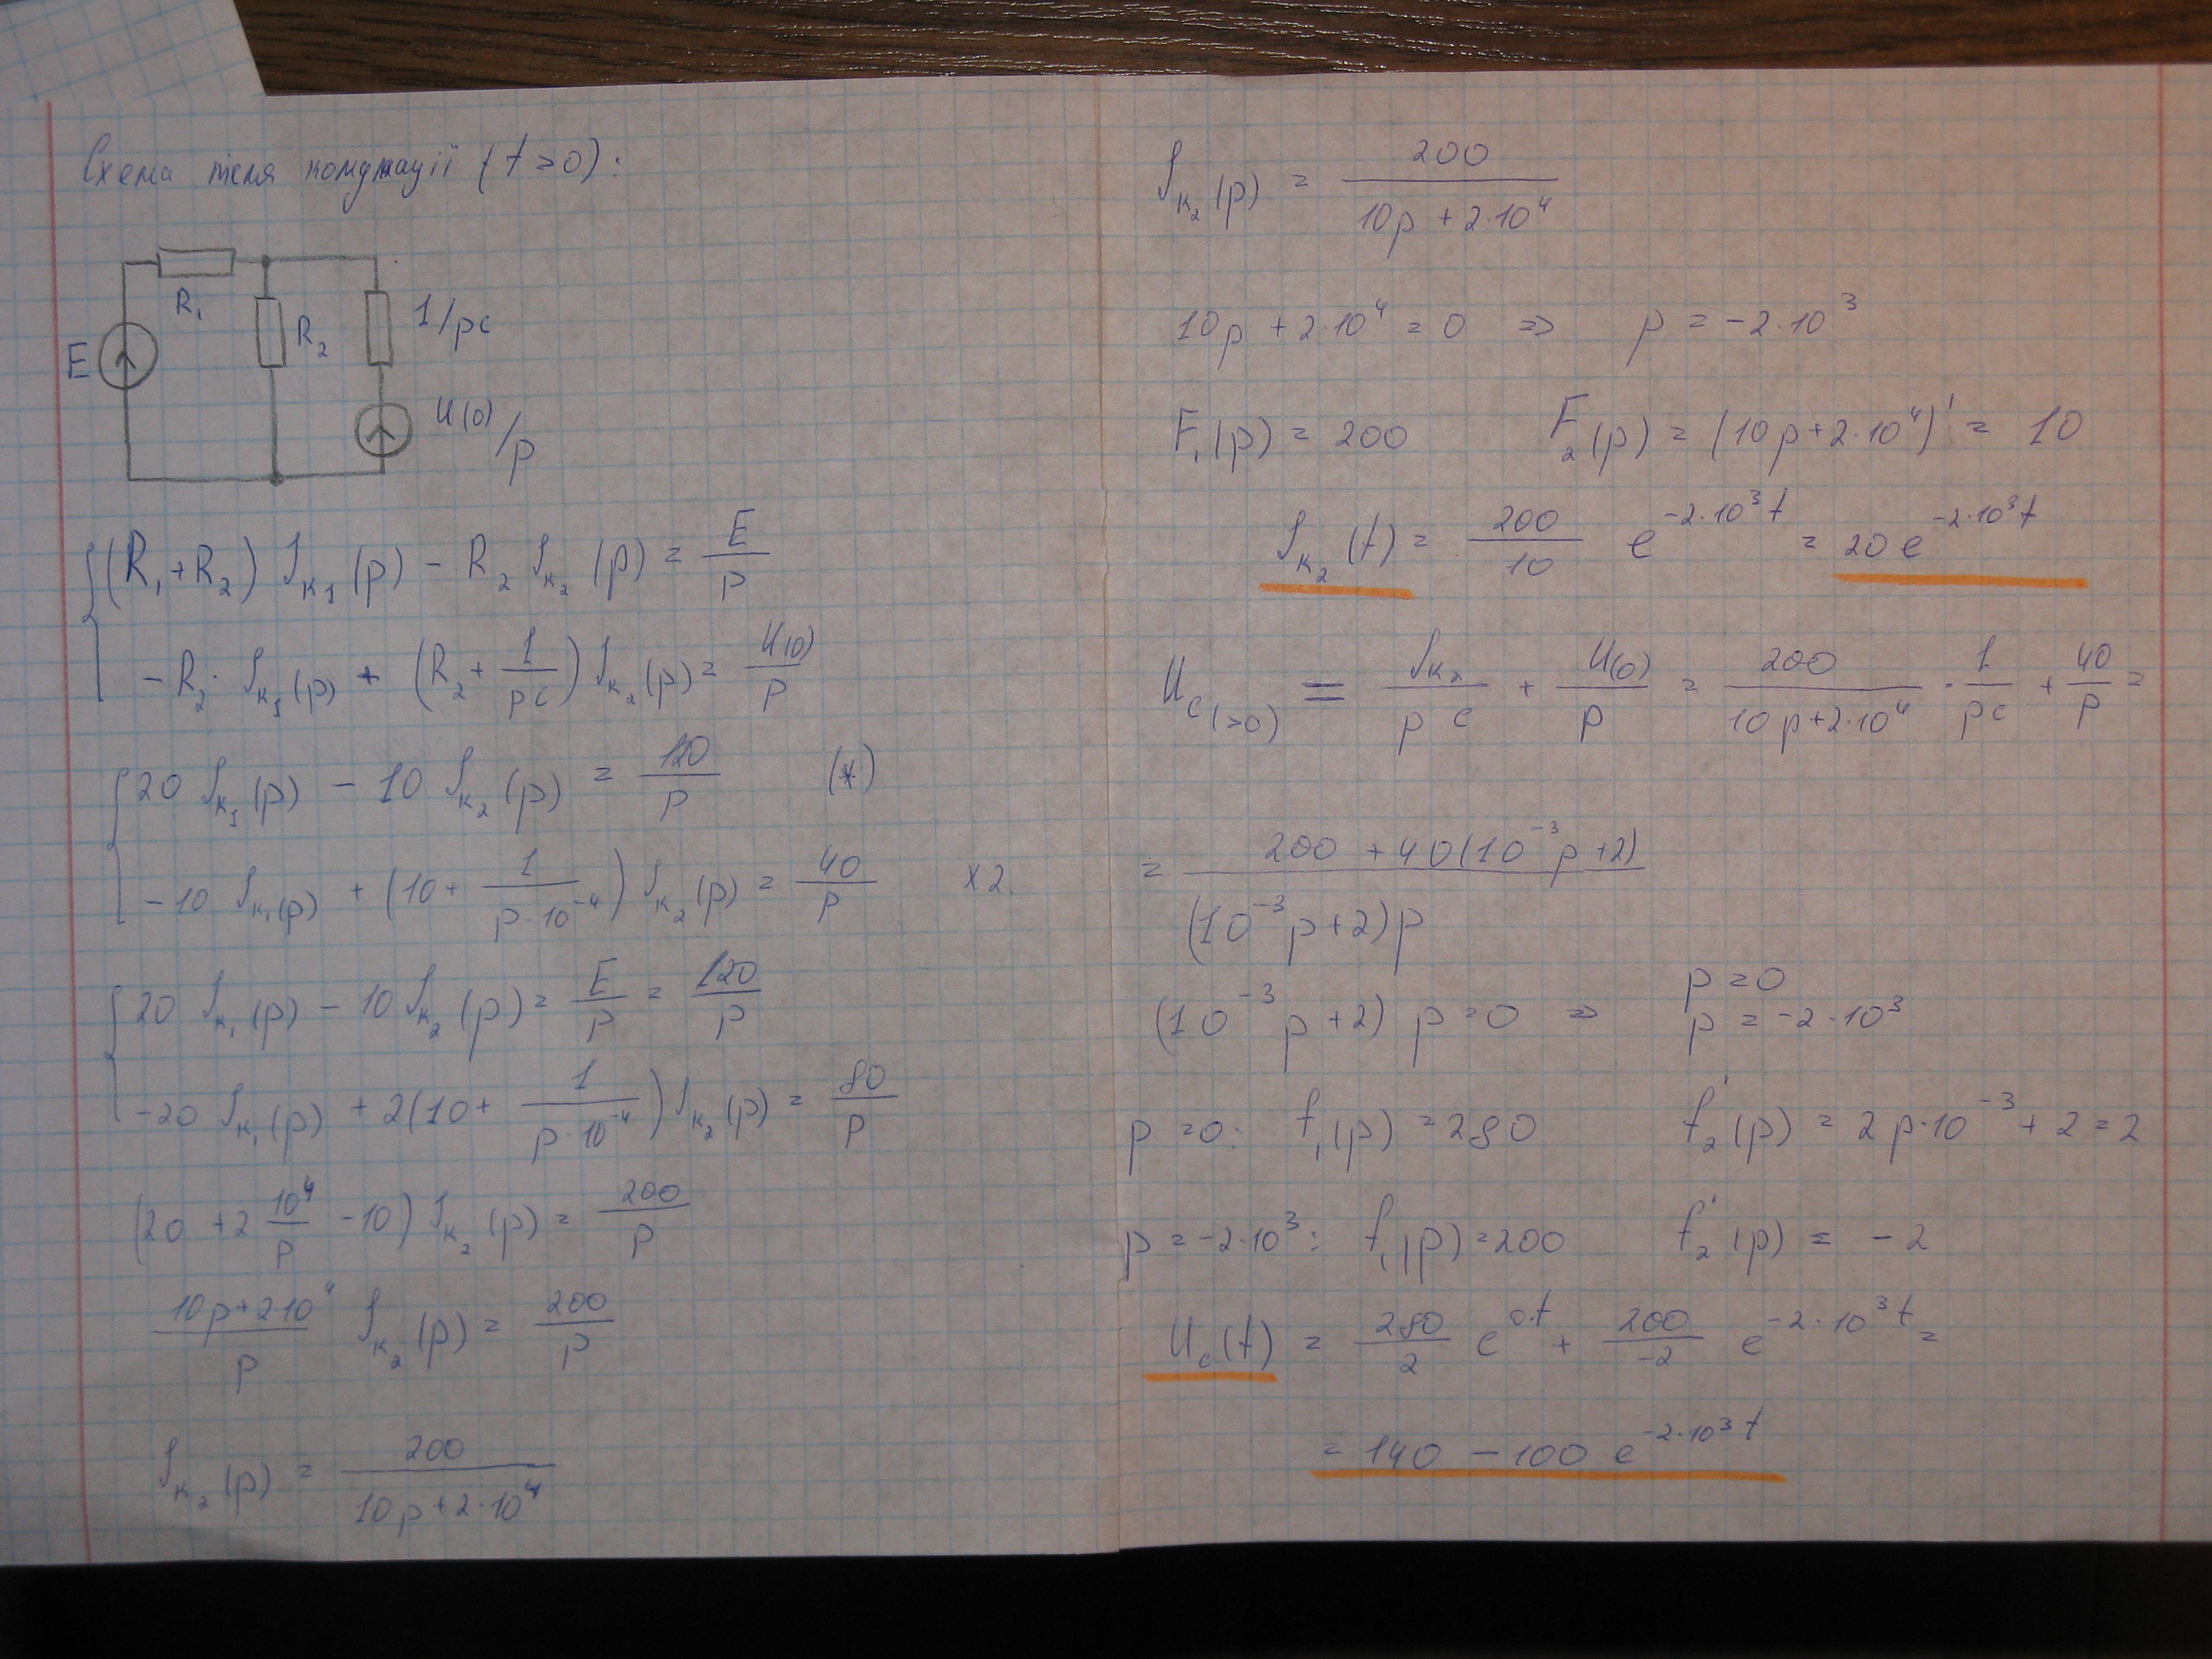 Схема після комутації (t>0):
R₁
R₂
1/pc
E
U(0)/p
(R₁+R₂) I_к₁(p) - R₂ I_к₂(p) = E/p
-R₂· I_к₁(p) + (R₂ + 1/pc) I_к₂(p) = U(0)/p
20 I_к₁(p) - 10 I_к₂(p) = 120/p (*)
-10 I_к₁(p) + (10 + 1/(p·10⁻⁴)) I_к₂(p) = 40/p x2.
20 I_к₁(p) - 10 I_к₂(p) = E/p = 120/p
-20 I_к₁(p) + 2(10 + 1/(p·10⁻⁴)) I_к₂(p) = 80/p
(20 + 2 10⁴/p - 10) I_к₂(p) = 200/p
(10p+2·10⁴)/p I_к₂(p) = 200/p
I_к₂(p) = 200/(10p+2·10⁴)
I_к₂(p) = 200/(10p + 2·10⁴)
10p + 2·10⁴ = 0 => p = -2·10³
F₁(p) = 200 F₂(p) = (10p+2·10⁴)' = 10
I_к₂(t) = 200/10 e^(-2·10³t) = 20 e^(-2·10³t)
U_c(>0) = I_к₂/(p c) + U(0)/p = 200/(10p+2·10⁴) · 1/(pc) + 40/p =
= (200 + 40(10⁻³p+2))/((10⁻³p+2)p)
(10⁻³p+2) p=0 => p=0
p = -2·10³
p=0: f₁(p) = 280 f₂'(p) = 2p·10⁻³ + 2 = 2
p = -2·10³: f₁(p) = 200 f₂'(p) = -2
U_c(t) = 280/2 e^(0·t) + 200/-2 e^(-2·10³t) =
= 140 - 100 e^(-2·10³t)